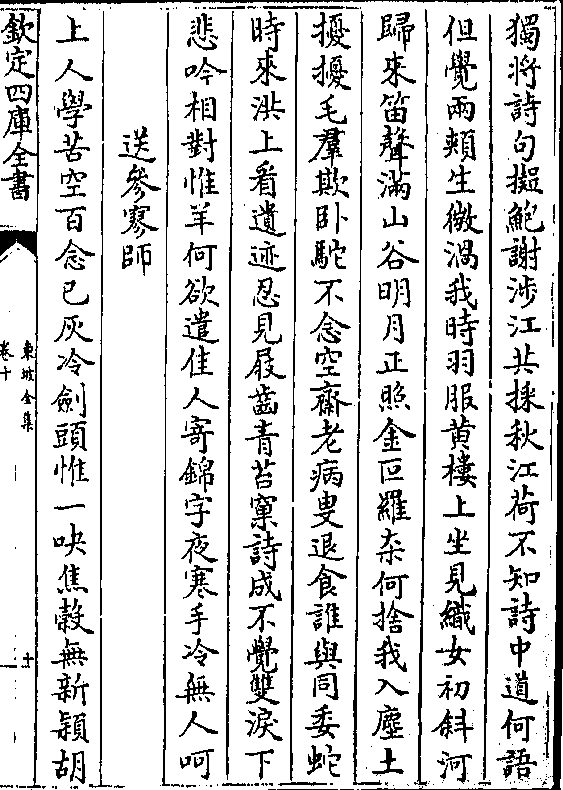 獨將詩句擬鮑謝涉江共採秋江荷不知詩中道何語
但覺兩頰生微渦我時羽服黄樓上坐見織女初斜河
歸來笛聲滿山谷明月正照金叵羅柰何捨我入塵土
擾擾毛羣欺卧駝不念空齋老病叟退食誰與同委蛇
時來洪上看遺迹忍見屐齒青苔窠詩成不覺雙淚下
悲吟相對惟羊何欲遣佳人寄錦字夜寒手冷無人呵
送參寥師
上人學苦空百念已灰冷劍頭惟一吷焦穀無新穎胡
欽定四庫全書
東坡全集
卷十
十